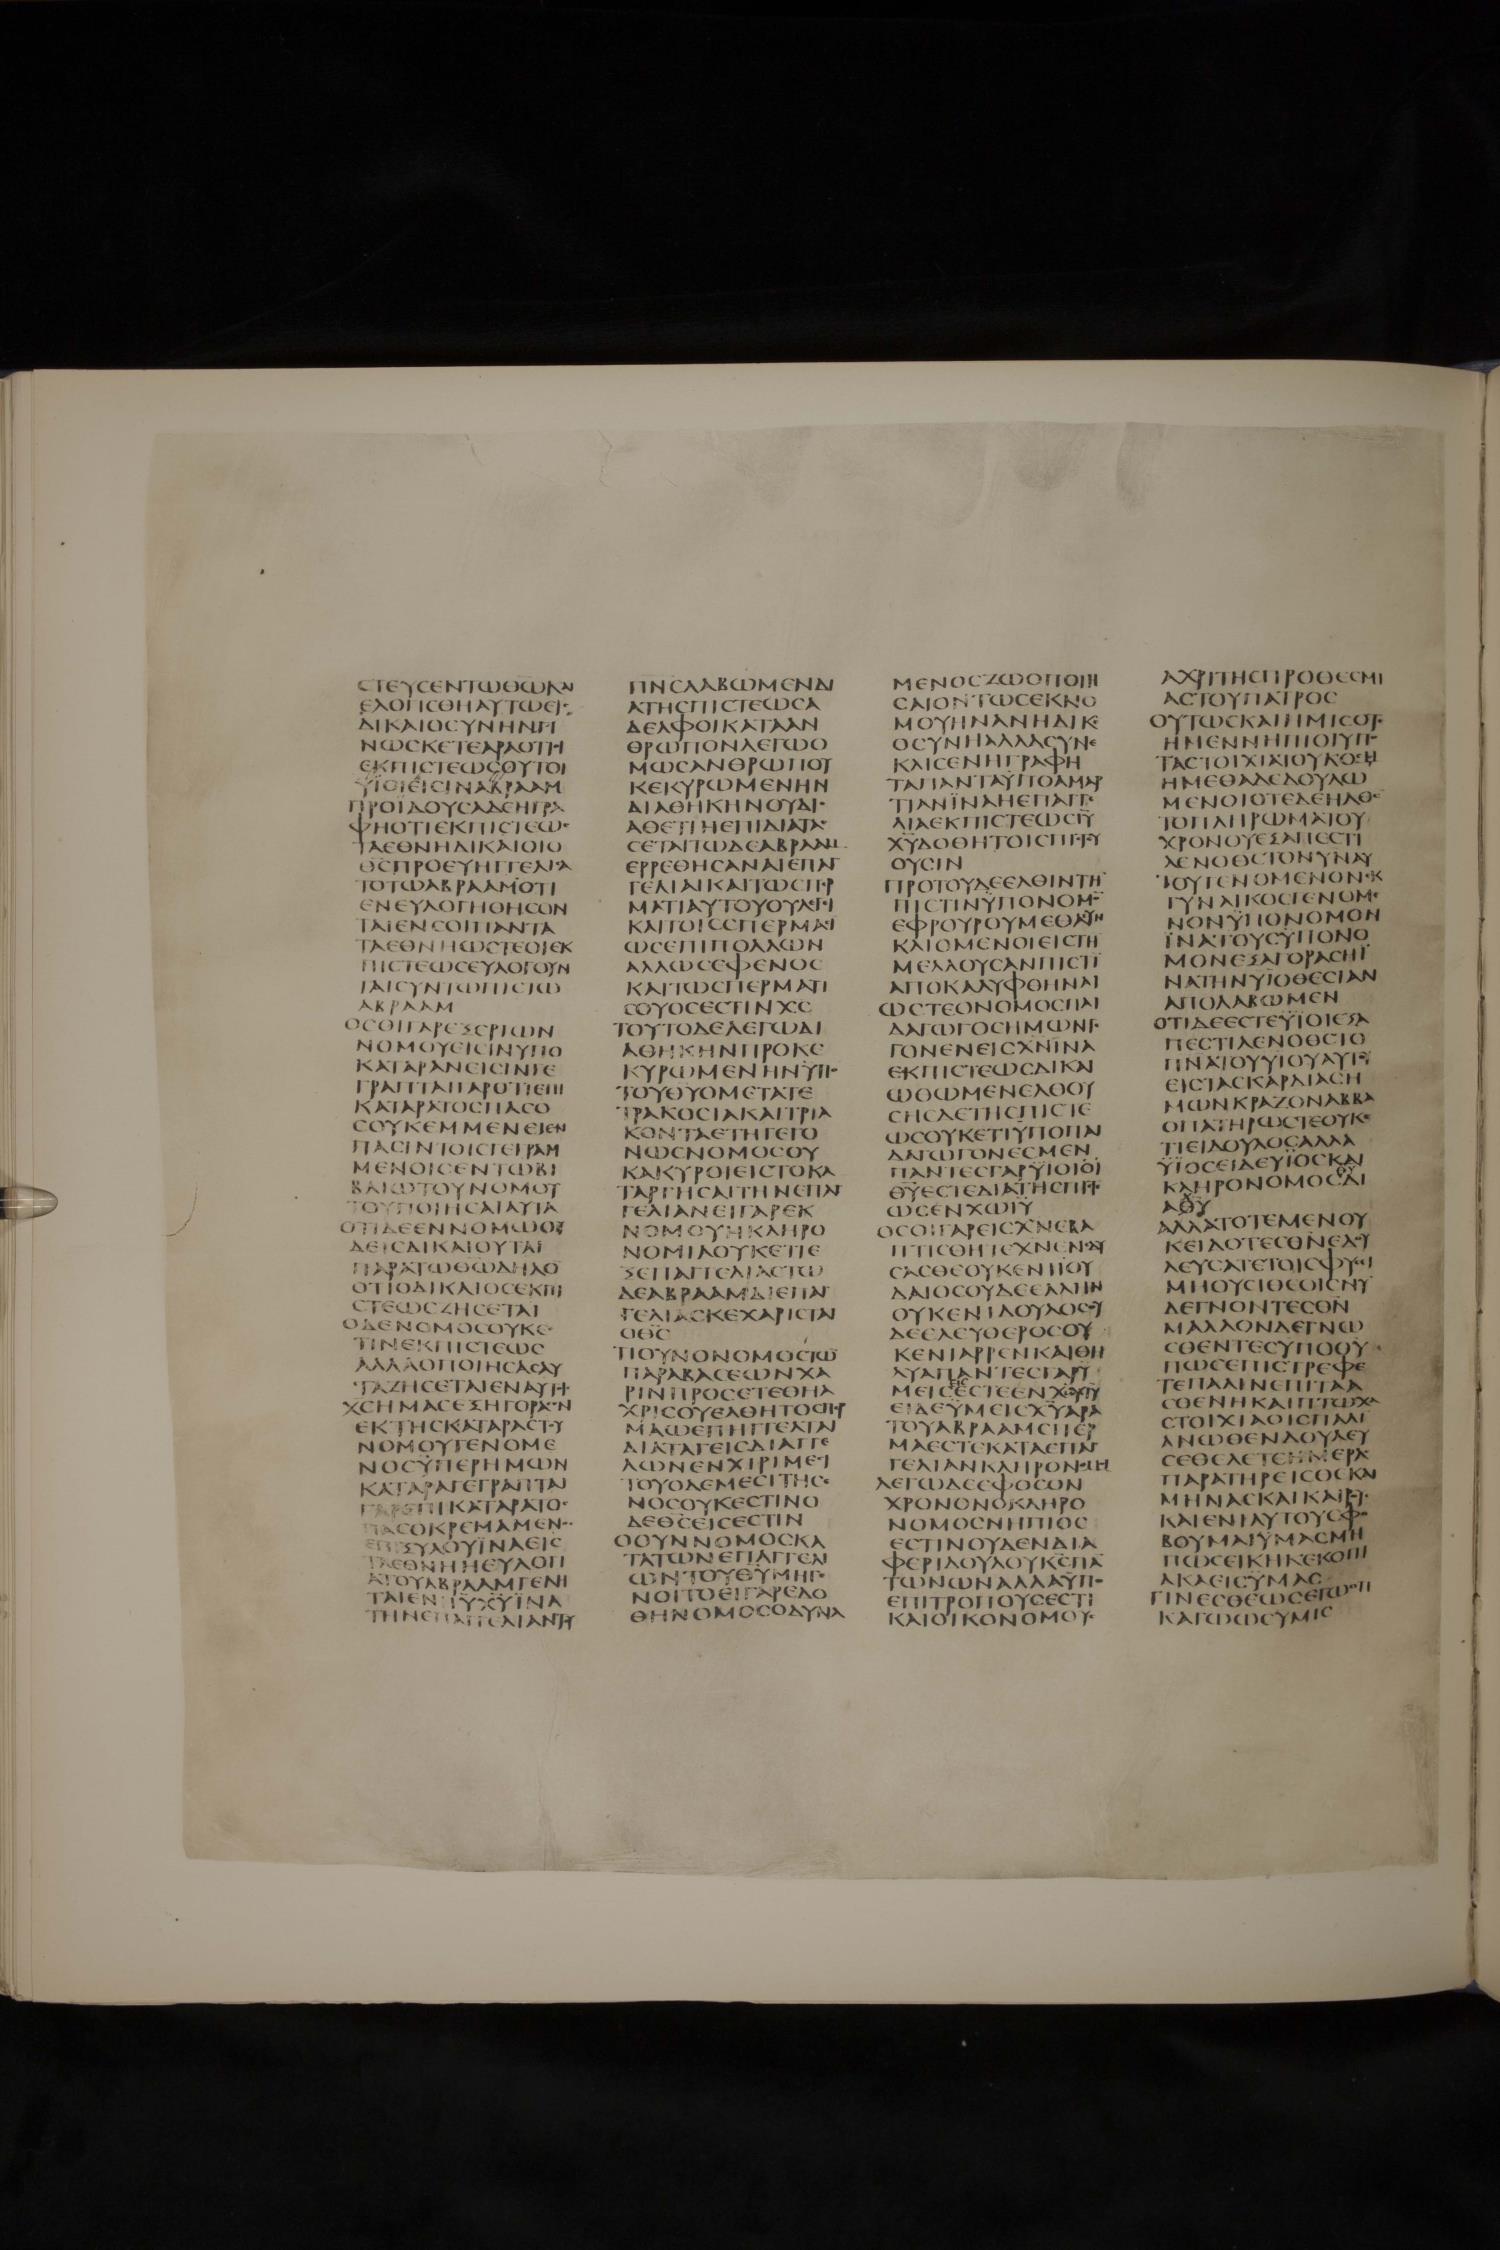 ϹΤΕΥϹΕΝΤΩΘΩΚΑΙ
ΕΛΟΓΙϹΘΗΑΥΤΩΕΙϹ
ΔΙΚΑΙΟϹΥΝΗΝΓΙ
ΝΩϹΚΕΤΕΑΡΑΟΤΙΟΙ
ΕΚΠΙϹΤΕΩϹΟΥΤΟΙ
ΥΪΟΙΕΙϹΙΝΑΒΡΑΑΜ
ΠΡΟΪΔΟΥϹΑΔΕΗΓΡΑ
ΦΗΟΤΙΕΚΠΙϹΤΕΩϹ
ΤΑΕΘΝΗΔΙΚΑΙΟΙΟ
ΘϹΠΡΟΕΥΗΓΓΕΛΙϹΑ
ΤΟΤΩΑΒΡΑΑΜΟΤΙ
ΕΝΕΥΛΟΓΗΘΗϹΟΝ
ΤΑΙΕΝϹΟΙΠΑΝΤΑ
ΤΑΕΘΝΗΩϹΤΕΟΙΕΚ
ΠΙϹΤΕΩϹΕΥΛΟΓΟΥΝ
ΤΑΙϹΥΝΤΩΠΙϹΤΩ
ΑΒΡΑΑΜ
ΟϹΟΙΓΑΡΕΞΕΡΓΩΝ
ΝΟΜΟΥΕΙϹΙΝΥΠΟ
ΚΑΤΑΡΑΝΕΙϹΙΝΓΕ
ΓΡΑΠΤΑΙΓΑΡΟΤΙΕΠΙ
ΚΑΤΑΡΑΤΟϹΠΑϹΟ
ϹΟΥΚΕΜΜΕΝΕΙΕΝ
ΠΑϹΙΝΤΟΙϹΓΕΓΡΑΜ
ΜΕΝΟΙϹΕΝΤΩΒΙ
ΒΛΙΩΤΟΥΝΟΜΟΥ
ΤΟΥΠΟΙΗϹΑΙΑΥΤΑ
ΟΤΙΔΕΕΝΝΟΜΩΟΥ
ΔΕΙϹΔΙΚΑΙΟΥΤΑΙ
ΠΑΡΑΤΩΘΩΔΗΛΟ
ΟΤΙΟΔΙΚΑΙΟϹΕΚΠΙ
ϹΤΕΩϹΖΗϹΕΤΑΙ
ΟΔΕΝΟΜΟϹΟΥΚΕ
ΤΙΝΕΚΠΙϹΤΕΩϹ
ΑΛΛΑΟΠΟΙΗϹΑϹΑΥ
ΤΑΖΗϹΕΤΑΙΕΝΑΥΤΟΙ
ΧϹΗΜΑϹΕΞΗΓΟΡΑϹΕΝ
ΕΚΤΗϹΚΑΤΑΡΑϹΤΟΥ
ΝΟΜΟΥΓΕΝΟΜΕ
ΝΟϹΫΠΕΡΗΜΩΝ
ΚΑΤΑΡΑΓΕΓΡΑΠΤΑΙ
ΓΑΡΕΠΙΚΑΤΑΡΑΤΟϹ
ΠΑϹΟΚΡΕΜΑΜΕΝΟϹ
ΕΠΙΞΥΛΟΥΪΝΑΕΙϹ
ΤΑΕΘΝΗΗΕΥΛΟΓΙ
ΑΤΟΥΑΒΡΑΑΜΓΕΝΗ
ΤΑΙΕΝΙΥΧΥΪΝΑ
ΤΗΝΕΠΑΓΓΕΛΙΑΝΤΟΥ
ΠΝϹΛΑΒΩΜΕΝΔΙ
ΑΤΗϹΠΙϹΤΕΩϹΑ
ΔΕΛΦΟΙΚΑΤΑΑΝ
ΘΡΩΠΟΝΛΕΓΩΟ
ΜΩϹΑΝΘΡΩΠΟΥ
ΚΕΚΥΡΩΜΕΝΗΝ
ΔΙΑΘΗΚΗΝΟΥΔΙϹ
ΑΘΕΤΙΗΕΠΙΔΙΑΤΑϹ
ϹΕΤΑΙΤΩΔΕΑΒΡΑΑΜ
ΕΡΡΕΘΗϹΑΝΑΙΕΠΑΓ
ΓΕΛΙΑΙΚΑΙΤΩϹΠΕΡ
ΜΑΤΙΑΥΤΟΥΟΥΛΕΓΙ
ΚΑΙΤΟΙϹϹΠΕΡΜΑϹΙ
ΩϹΕΠΙΠΟΛΛΩΝ
ΑΛΛΩϹΕΦΕΝΟϹ
ΚΑΙΤΩϹΠΕΡΜΑΤΙ
ϹΟΥΟϹΕϹΤΙΝΧϹ
ΤΟΥΤΟΔΕΛΕΓΩΔΙ
ΑΘΗΚΗΝΠΡΟΚΕ
ΚΥΡΩΜΕΝΗΝΫΠΟ
ΤΟΥΘΥΟΜΕΤΑΤΕ
ΤΡΑΚΟϹΙΑΚΑΙΤΡΙΑ
ΚΟΝΤΑΕΤΗΓΕΓΟ
ΝΩϹΝΟΜΟϹΟΥ
ΚΑΚΥΡΟΙΕΙϹΤΟΚΑ
ΤΑΡΓΗϹΑΙΤΗΝΕΠΑΓ
ΓΕΛΙΑΝΕΙΓΑΡΕΚ
ΝΟΜΟΥΗΚΛΗΡΟ
ΝΟΜΙΑΟΥΚΕΤΙΕ
ΞΕΠΑΓΓΕΛΙΑϹΤΩ
ΔΕΑΒΡΑΑΜΔΙΕΠΑΓ
ΓΕΛΙΑϹΚΕΧΑΡΙϹΤΑΙ
ΟΘϹ
ΤΙΟΥΝΟΝΟΜΟϹΤΩ
ΠΑΡΑΒΑϹΕΩΝΧΑ
ΡΙΝΠΡΟϹΕΤΕΘΗΑ
ΧΡΙϹΟΥΕΛΘΗΤΟϹΠΕΡ
ΜΑΩΕΠΗΓΓΕΛΤΑΙ
ΔΙΑΤΑΓΕΙϹΔΙΑΓΓΕ
ΛΩΝΕΝΧΙΡΙΜΕϹΙ
ΤΟΥΟΔΕΜΕϹΙΤΗϹΕ
ΝΟϹΟΥΚΕϹΤΙΝΟ
ΔΕΘϹΕΙϹΕϹΤΙΝ
ΟΟΥΝΝΟΜΟϹΚΑ
ΤΑΤΩΝΕΠΑΓΓΕΛΙ
ΩΝΤΟΥΘΥΜΗΓΕ
ΝΟΙΤΟΕΙΓΑΡΕΔΟ
ΘΗΝΟΜΟϹΟΔΥΝΑ
ΜΕΝΟϹΖΩΟΠΟΙΗ
ϹΑΙΟΝΤΩϹΕΚΝΟ
ΜΟΥΗΝΑΝΗΔΙΚΕ
ΟϹΥΝΗΑΛΛΑϹΥΝΕ
ΚΛΙϹΕΝΗΓΡΑΦΗ
ΤΑΠΑΝΤΑΫΠΟΑΜΑΡ
ΤΙΑΝΪΝΑΗΕΠΑΓΓΕ
ΛΙΑΕΚΠΙϹΤΕΩϹΙΥ
ΧΥΔΟΘΗΤΟΙϹΠΙϹΤΕΥ
ΟΥϹΙΝ
ΠΡΟΤΟΥΔΕΕΛΘΙΝΤΗ
ΠΙϹΤΙΝΫΠΟΝΟΜΟ
ΕΦΡΟΥΡΟΥΜΕΘΑϹΥΝ
ΚΛΙΟΜΕΝΟΙΕΙϹΤΗ
ΜΕΛΛΟΥϹΑΝΠΙϹΤΙ
ΑΠΟΚΑΛΥΦΘΗΝΑΙ
ΩϹΤΕΟΝΟΜΟϹΠΑΙ
ΔΑΓΩΓΟϹΗΜΩΝΓΕ
ΓΟΝΕΝΕΙϹΧΝΪΝΑ
ΕΚΠΙϹΤΕΩϹΔΙΚΑΙ
ΩΘΩΜΕΝΕΛΘΟΥ
ϹΗϹΔΕΤΗϹΠΙϹΤΕ
ΩϹΟΥΚΕΤΙΫΠΟΠΑΙ
ΔΑΓΩΓΟΝΕϹΜΕΝ
ΠΑΝΤΕϹΓΑΡΫΙΟΙΟΙ
ΘΥΕϹΤΕΔΙΑΤΗϹΠΙϹΤΕ
ΩϹΕΝΧΩΙΥ
ΟϹΟΙΓΑΡΕΙϹΧΝΕΒΑ
ΠΤΙϹΘΗΤΕΧΝΕΝΕΔΥ
ϹΑϹΘΕΟΥΚΕΝΙΪΟΥ
ΔΑΙΟϹΟΥΔΕΕΛΛΗΝ
ΟΥΚΕΝΙΔΟΥΛΟϹΟΥ
ΔΕΕΛΕΥΘΕΡΟϹΟΥ
ΚΕΝΙΑΡΡΕΝΚΑΙΘΗ
ΛΥΑΠΑΝΤΕϹΓΑΡΥ
ΜΕΙϹΕΙϹΕϹΤΕΕΝΧΩΙΥ
ΕΙΔΕΫΜΕΙϹΧΥΑΡΑ
ΤΟΥΑΒΡΑΑΜϹΠΕΡ
ΜΑΕϹΤΕΚΑΤΑΕΠΑΓ
ΓΕΛΙΑΝΚΛΗΡΟΝΟΜΟΙ
ΛΕΓΩΔΕΕΦΟϹΟΝ
ΧΡΟΝΟΝΟΚΛΗΡΟ
ΝΟΜΟϹΝΗΠΙΟϹ
ΕϹΤΙΝΟΥΔΕΝΔΙΑ
ΦΕΡΙΔΟΥΛΟΥΚϹΠΑ
ΤΩΝΩΝΑΛΛΑΫΠΟ
ΕΠΙΤΡΟΠΟΥϹΕϹΤΙ
ΚΑΙΟΙΚΟΝΟΜΟΥϹ
ΑΧΡΙΤΗϹΠΡΟΘΕϹΜΙ
ΑϹΤΟΥΠΑΤΡΟϹ
ΟΥΤΩϹΚΑΙΗΜΙϹΟΤΕ
ΗΜΕΝΝΗΠΙΟΙΥΠΟ
ΤΑϹΤΟΙΧΙΑΤΟΥΚΟϹΜΟΥ
ΗΜΕΘΑΔΕΔΟΥΛΩ
ΜΕΝΟΙΟΤΕΔΕΗΛΘΕ
ΤΟΠΛΗΡΩΜΑΤΟΥ
ΧΡΟΝΟΥΕΞΑΠΕϹΤΙ
ΛΕΝΟΘϹΤΟΝΥΝΑΥ
ΤΟΥΓΕΝΟΜΕΝΟΝΕΚ
ΓΥΝΑΙΚΟϹΓΕΝΟΜΕ
ΝΟΝΫΠΟΝΟΜΟΝ
ΪΝΑΤΟΥϹΫΠΟΝΟ
ΜΟΝΕΞΑΓΟΡΑϹΗΪ
ΝΑΤΗΝΥΪΟΘΕϹΙΑΝ
ΑΠΟΛΑΒΩΜΕΝ
ΟΤΙΔΕΕϹΤΕΫΙΟΙΕΞΑ
ΠΕϹΤΙΛΕΝΟΘϹΤΟ
ΠΝΑΤΟΥΥΙΟΥΑΥΤΟΥ
ΕΙϹΤΑϹΚΑΡΔΙΑϹΗ
ΜΩΝΚΡΑΖΟΝΑΒΒΑ
ΟΠΑΤΗΡΩϹΤΕΟΥΚΕ
ΤΙΕΙΔΟΥΛΟϹΑΛΛΑ
ΫΙΟϹΕΙΔΕΥΪΟϹΚΑΙ
ΚΛΗΡΟΝΟΜΟϹΔΙ
ΑΘΥ
ΑΛΛΑΤΟΤΕΜΕΝΟΥ
ΚΕΙΔΟΤΕϹΘΝΕΔΟΥ
ΛΕΥϹΑΤΕΤΟΙϹΦΥϹΕΙ
ΜΗΟΥϹΙΘΕΟΙϹΝΥ
ΔΕΓΝΟΝΤΕϹΘΝ
ΜΑΛΛΟΝΔΕΓΝΩ
ϹΘΕΝΤΕϹΥΠΟΘΥ
ΠΩϹΕΠΙϹΤΡΕΦΕ
ΤΕΠΑΛΙΝΕΠΙΤΑΑ
ϹΘΕΝΗΚΑΙΠΤΩΧΑ
ϹΤΟΙΧΙΑΟΙϹΠΑΛΙ
ΑΝΩΘΕΝΔΟΥΛΕΥ
ϹΕΘΕΛΕΤΕΗΜΕΡΑ
ΠΑΡΑΤΗΡΕΙϹΘΕΚΑΙ
ΜΗΝΑϹΚΑΙΚΑΙΡΟΥϹ
ΚΑΙΕΝΙΑΥΤΟΥϹΦΟ
ΒΟΥΜΑΙΫΜΑϹΜΗ
ΠΩϹΕΙΚΗΚΕΚΟΠΙ
ΑΚΑΕΙϹΫΜΑϹ
ΓΙΝΕϹΘΕΩϹΕΓΩΟΤΙ
ΚΑΓΩΩϹΥΜΙϹ